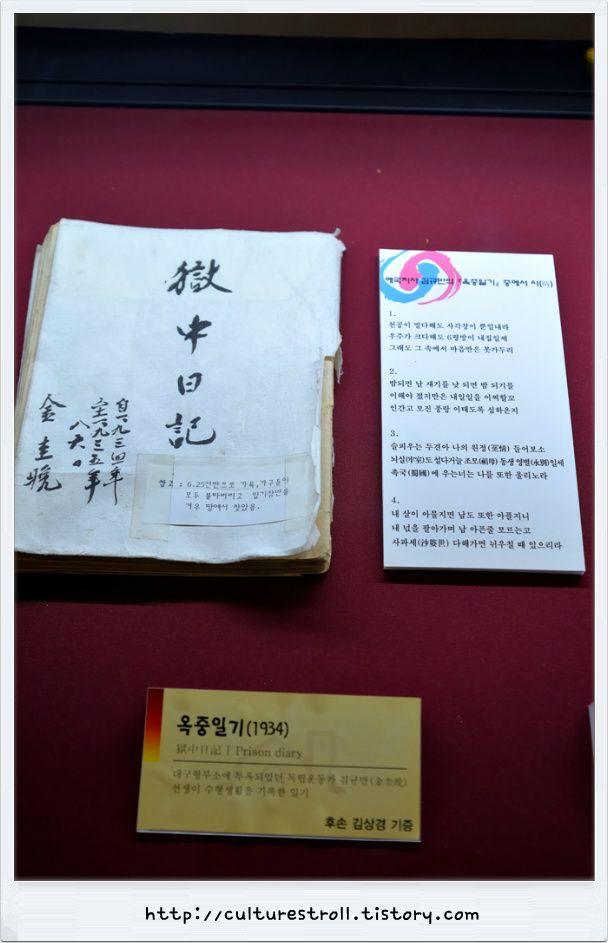 獄中日記
自一九三四年
至一九三五年
金圭晩
참고 : 6.25전란으로 가옥,가구들이
모두 불타버리고 일기장만을
겨우 땅에서 찾았음.
애국지사 김규만의 『옥중일기』 중에서 시(詩)
1.
천공이 멀다해도 사각창이 뿐일내라
우주가 크다해도 6평방이 내집일세
그래도 그 속에서 마음만은 못가두리
2.
밤되면 날 새기를 낮 되면 밤 되기를
이해야 졌지만은 내일일을 어찌할꼬
인간고 모진 풍랑 이태도록 심하온지
3.
슬피우는 두견아 나의 원정(寃情) 들어보소
뇌실(牢室)도 섧다거늘 조모(祖母)동생 영별(永別)일세
촉국(蜀國)에 우는너는 나를 또한 울리노라
4.
내 살이 아플지면 남도 또한 아플지니
내 넋을 팔아가며 남 아픈줄 모르는고
사파세(沙婆世) 다해가면 뉘우칠 때 있으리라
옥중일기(1934)
獄中日記 | Prison diary
대구형무소에 투옥되었던 독립운동가 김규만(金圭晩)
선생이 수형생활을 기록한 일기
후손 김상경 기증
http://culturestroll.tistory.com